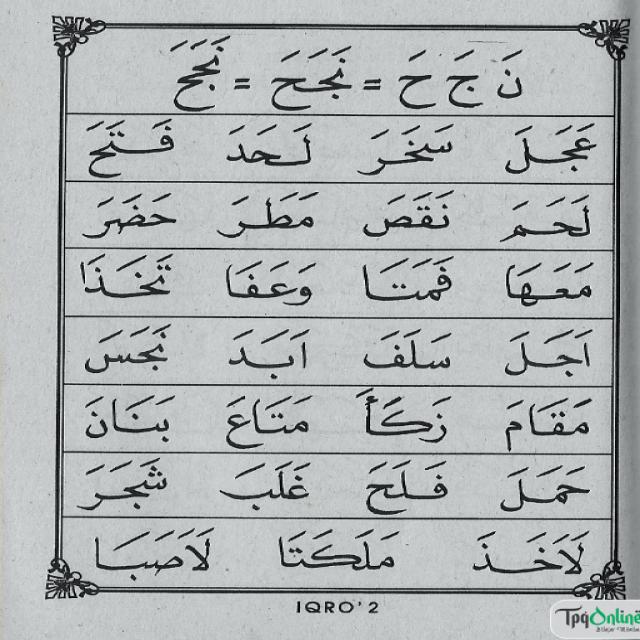 نَ جَ حَ = نَجَحَ = نَجَحَ
عَجَلَ سَخَرَ لَحَدَ فَتَحَ
لَحَمَ نَقَصَ مَطَرَ حَضَرَ
مَعَهَا فَمَتَا وَعَفَا تَخَذَا
اَجَلَ سَلَفَ اَبَدَ نَجَسَ
مَقَامَ زَكَأَ مَتَاعَ بَنَانَ
حَمَلَ فَلَحَ غَلَبَ شَجَرَ
لَاَخَذَ مَلَكَتَا لَاَصَبَا
IQRO' 2
TpqOnline